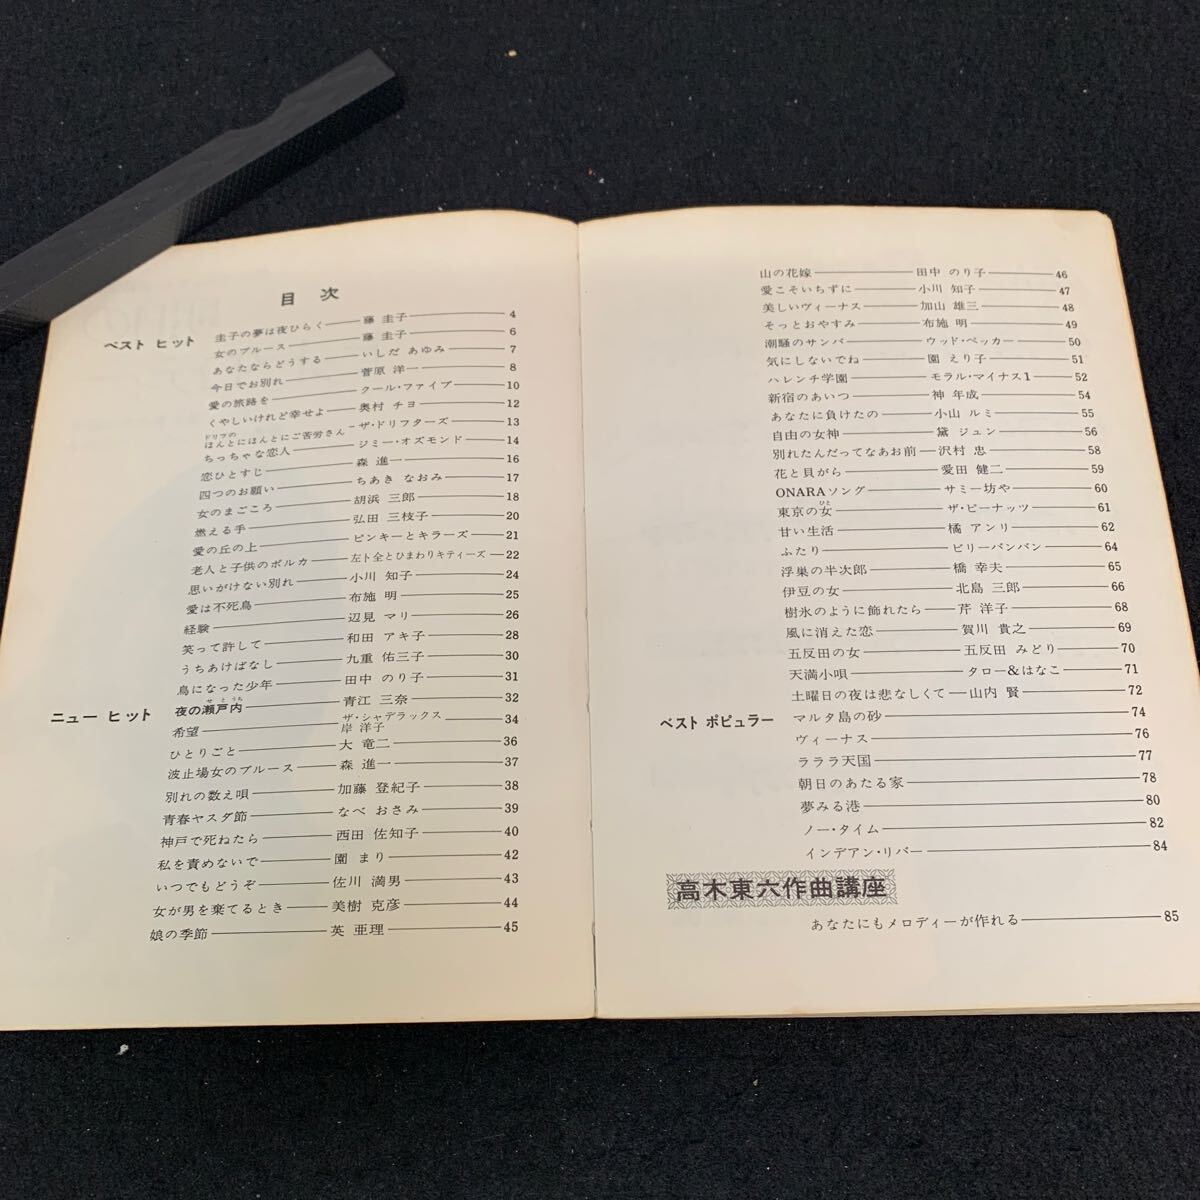 目次
ベスト ヒット
圭子の夢は夜ひらく 藤 圭子 4
女のブルース 藤 圭子 6
あなたならどうする いしだ あゆみ 7
今日でお別れ 菅原 洋一 8
愛の旅路を クール・ファイブ 10
くやしいけれど幸せよ 奥村 チヨ 12
ドリフのほんとにほんとにご苦労さん ザ・ドリフターズ 13
ちっちゃな恋人 ジミー・オズモンド 14
恋ひとすじ 森 進一 16
四つのお願い ちあき なおみ 17
女のまごころ 胡浜 三郎 18
燃える手 弘田 三枝子 20
愛の丘の上 ピンキーとキラーズ 21
老人と子供のポルカ 左卜全とひまわりキティーズ 22
思いがけない別れ 小川 知子 24
愛は不死鳥 布施 明 25
経験 辺見 マリ 26
笑って許して 和田 アキ子 28
うちあけばなし 九重 佑三子 30
鳥になった少年 田中 のり子 31
ニュー ヒット
夜の瀬戸内 青江 三奈 32
せとうち
希望 ザ・シャデラックス 岸 洋子 34
ひとりごと 大 竜二 36
波止場女のブルース 森 進一 37
別れの数え唄 加藤 登紀子 38
青春ヤスダ節 なべ おさみ 39
神戸で死ねたら 西田 佐知子 40
私を責めないで 園 まり 42
いつでもどうぞ 佐川 満男 43
女が男を棄てるとき 美樹 克彦 44
娘の季節 英 亜理 45
山の花嫁 田中 のり子 46
愛こそいちずに 小川 知子 47
美しいヴィーナス 加山 雄三 48
そっとおやすみ 布施 明 49
潮騒のサンバ ウッド・ペッカー 50
気にしないでね 園 えり子 51
ハレンチ学園 モラル・マイナス1 52
新宿のあいつ 神 年成 54
あなたに負けたの 小山 ルミ 55
自由の女神 黛 ジュン 56
別れたんだってなあお前 沢村 忠 58
花と貝がら 愛田 健二 59
ONARAソング サミー坊や 60
東京の女 ザ・ピーナッツ 61
ひと
甘い生活 橘 アンリ 62
ふたり ビリーバンバン 64
浮巣の半次郎 橋 幸夫 65
伊豆の女 北島 三郎 66
樹氷のように飾れたら 芹 洋子 68
風に消えた恋 賀川 貴之 69
五反田の女 五反田 みどり 70
天満小唄 タロー&はなこ 71
土曜日の夜は悲なしくて 山内 賢 72
ベスト ポピュラー
マルタ島の砂 74
ヴィーナス 76
ラララ天国 77
朝日のあたる家 78
夢みる港 80
ノー・タイム 82
インデアン・リバー 84
高木東六作曲講座
あなたにもメロディーが作れる 85